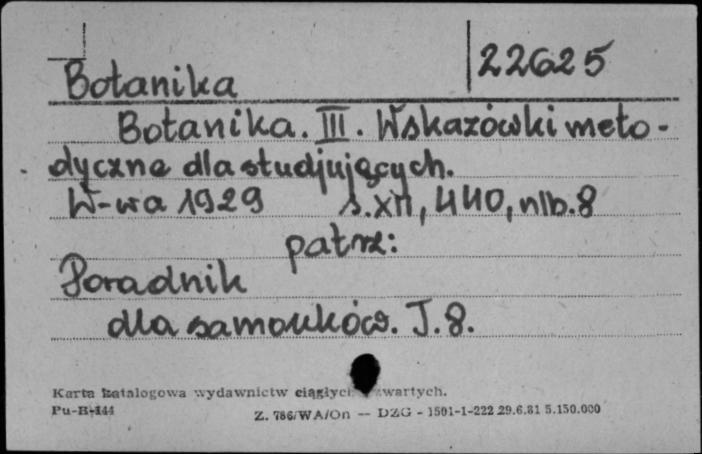 22625
Botanika
Botanika. III. Wskazówki meto-
dyczne dla studjujących.
W-wa 1929 s.XII, 440, nlb.8
patrz:
Poradnik
dla samouków. T.8.
Karta katalogowa wydawnictw ciągłych zwartych.
Pu-B-144 Z. 786/WA/On — DZG - 1501-1-222 29.6.81 5.150.000